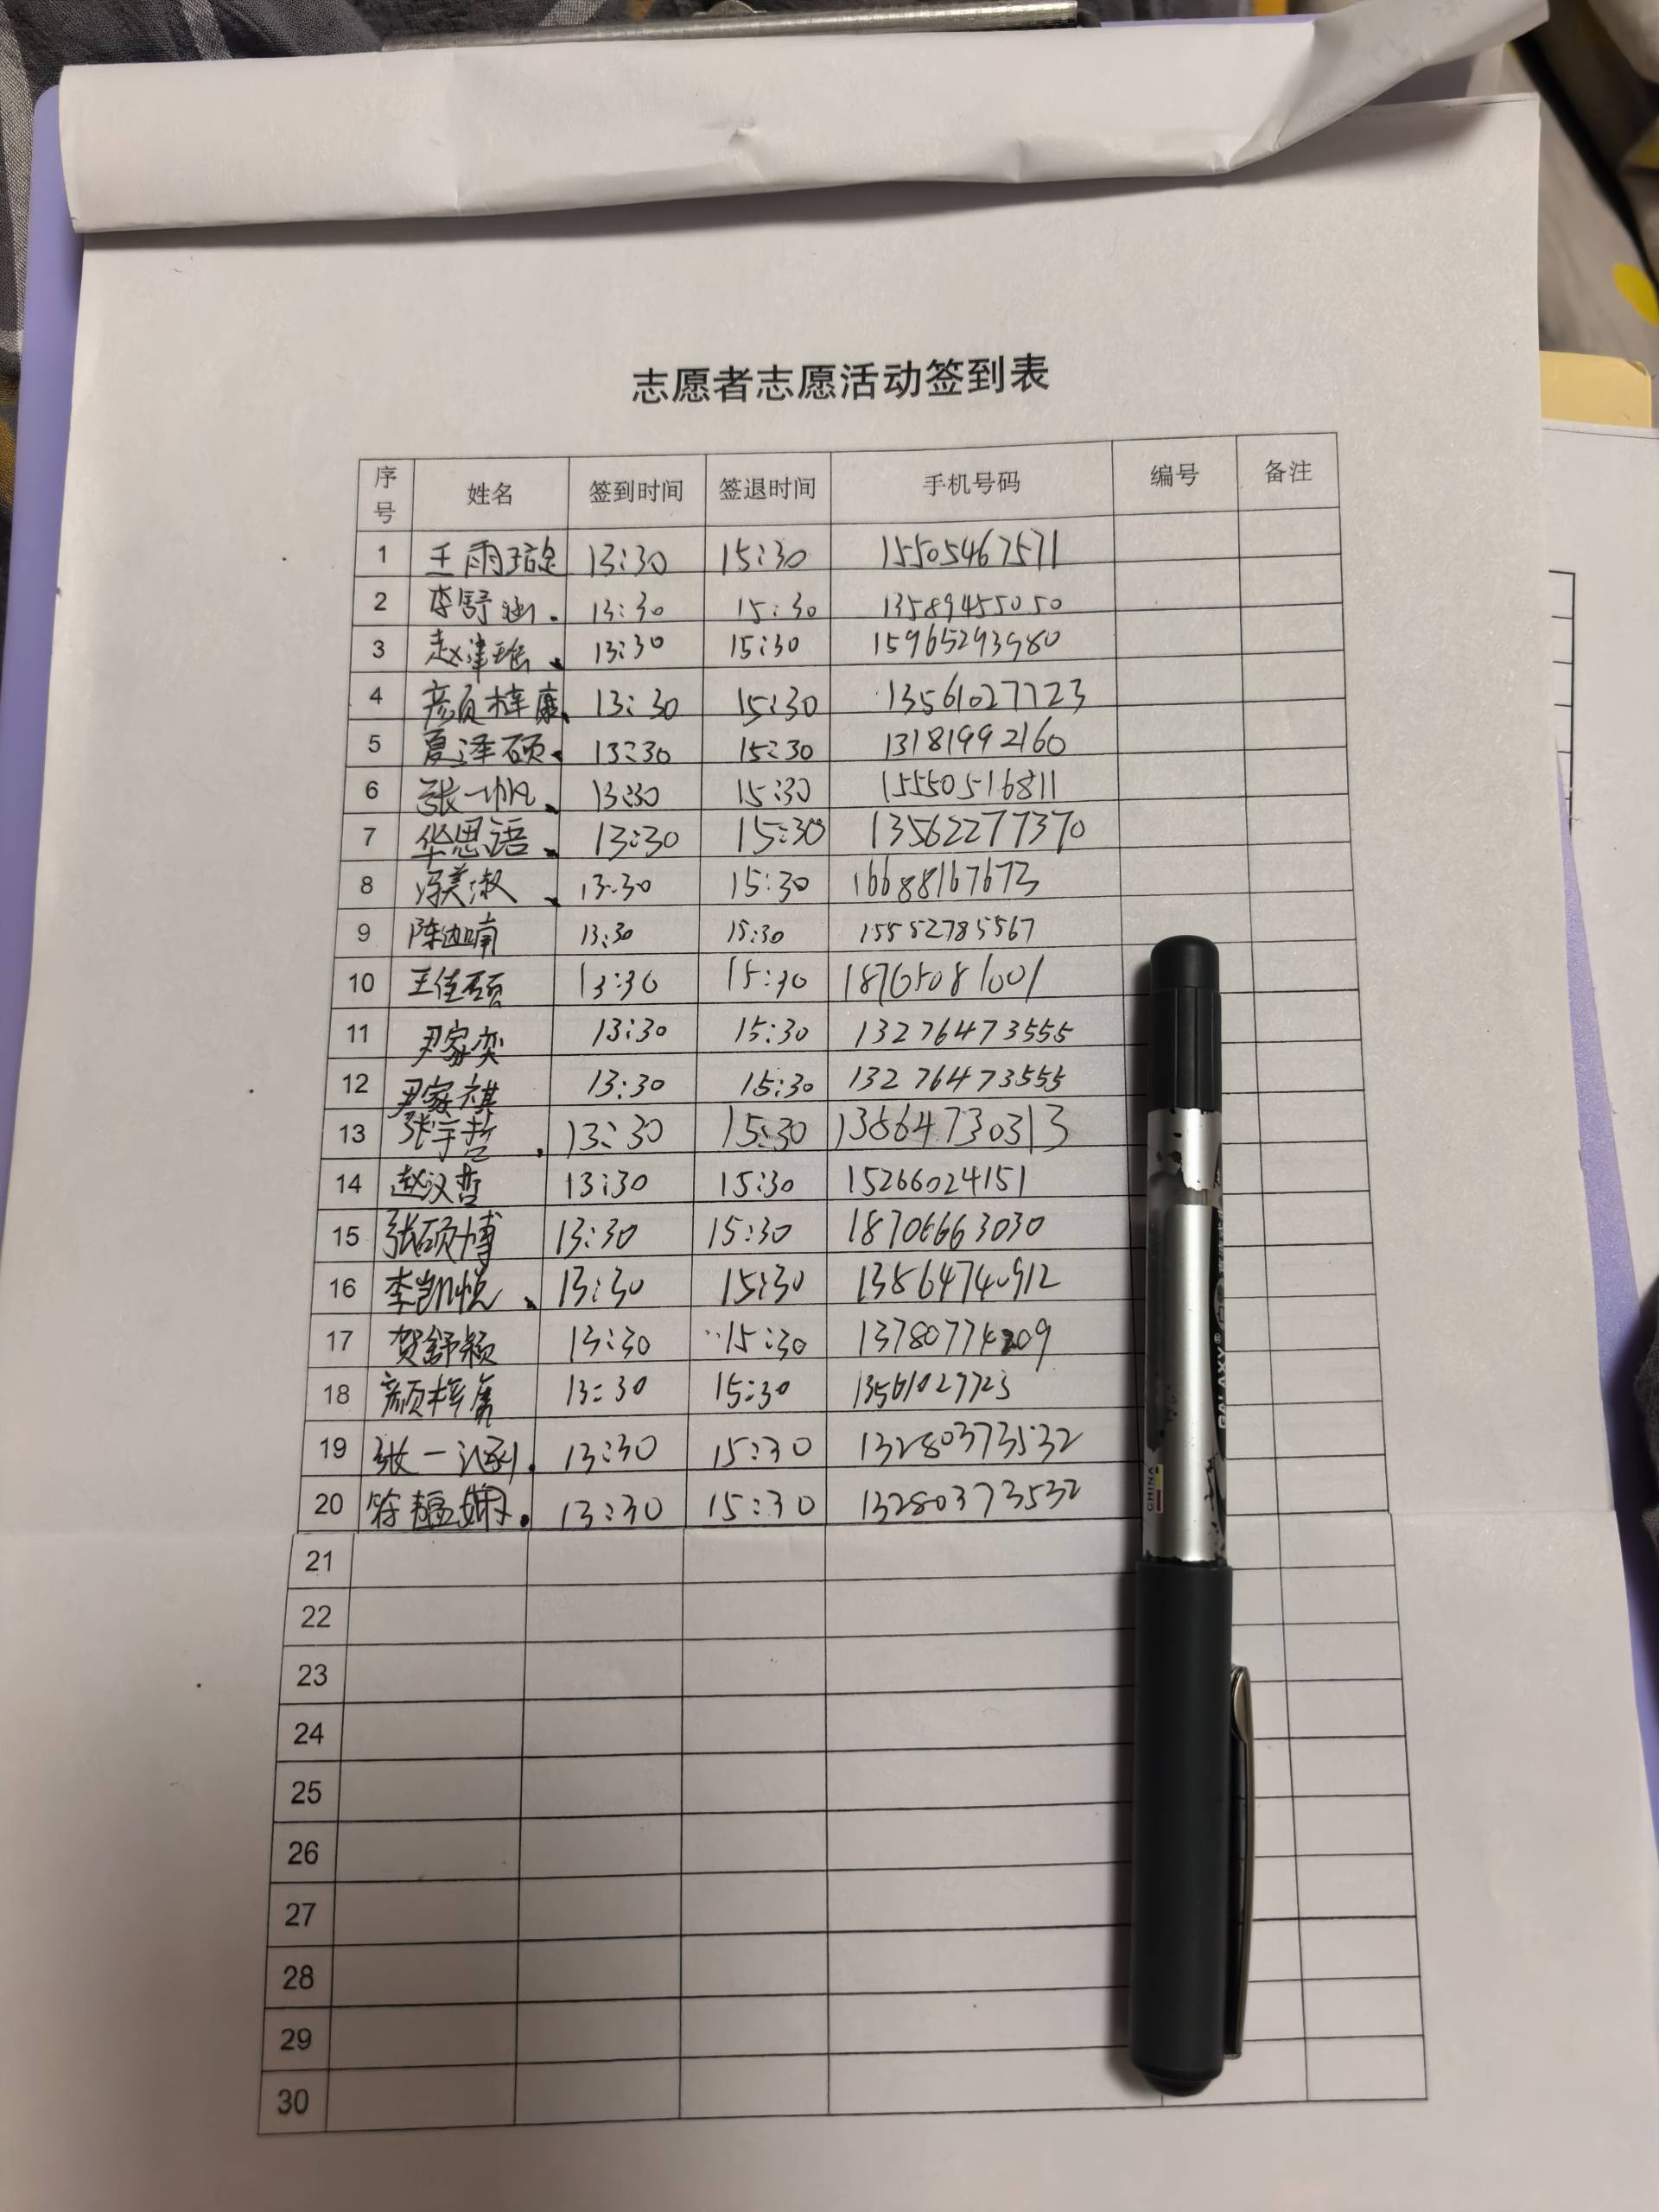 志愿者志愿活动签到表
序号 姓名 签到时间 签退时间 手机号码 编号 备注
1 王雨琔 13:30 15:30 15505467571
2 李舒涵. 13:30 15:30 13589455050
3 赵津瑶 13:30 15:30 15965293980
4 颜梓康 13:30 15:30 13561027723
5 夏泽硕 13:30 15:30 13181992160
6 张一帆 13:30 15:30 15550516811
7 华思语 13:30 15:30 13562277370
8 冯美淑 13:30 15:30 16688167673
9 陈迦喃 13:30 15:30 15552785567
10 王佳硕 13:30 15:30 18765081001
11 尹家奕 13:30 15:30 13276473555
12 尹家祺 13:30 15:30 13276473555
13 张宇哲. 13:30 15:30 13864730313
14 赵汉哲 13:30 15:30 15266024151
15 张硕博 13:30 15:30 18706663030
16 李凯悦 13:30 15:30 13864740912
17 贺舒颖 13:30 15:30 13780774209
18 颜梓 13:30 15:30 13561027723
19 张一涵. 13:30 15:30 13280373532
20 13:30 15:30 13280373532
21
22
23
24
25
26
27
28
29
30
GALAXY®
CHINA